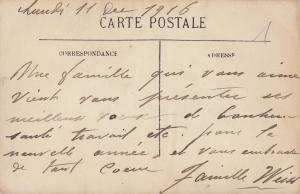 Lundi 11 Dec 1916
CARTE POSTALE
CORRESPONDANCE
ADRESSE
Une famille qui vous aime
vient vous présenter ses
meilleurs voeux de bonheur
santé travail etc. pour la
nouvelle année et vous embrasse
de tout coeur
Famille Weiss